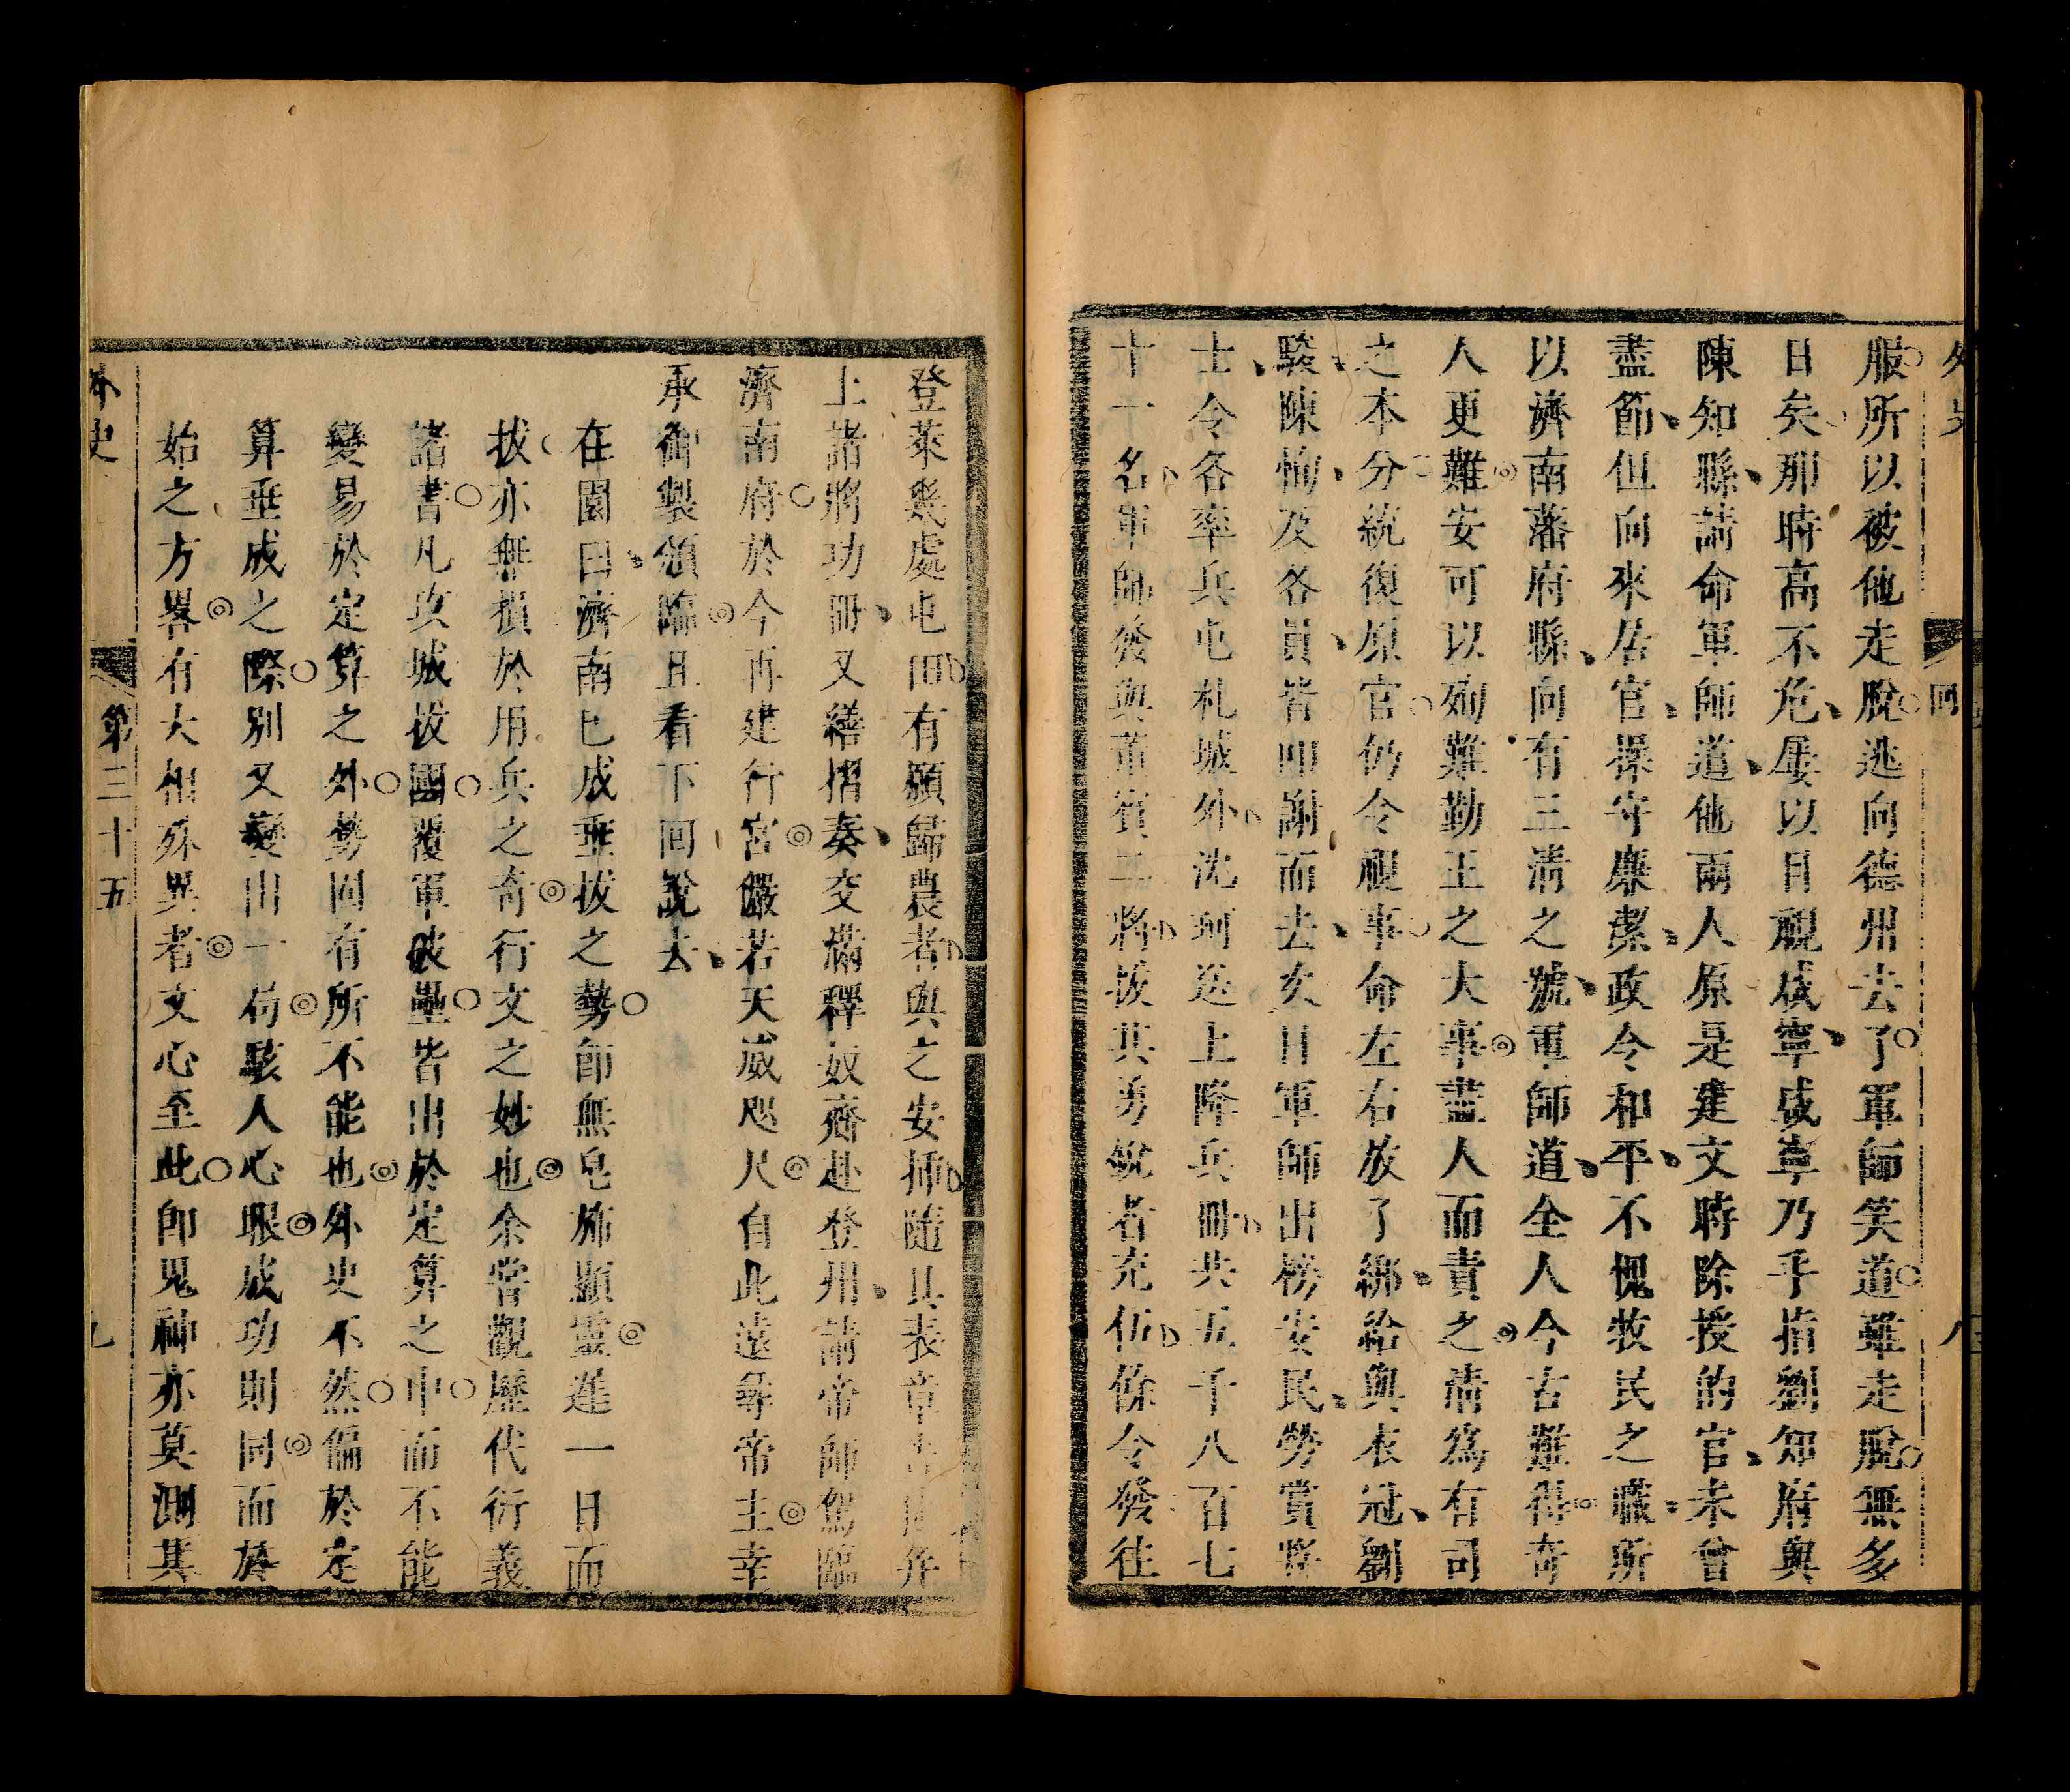 外史
回
八
服所以被他走脫逃向德州去了軍師笑道雖走脫無多
日矣那時高不危屢以目視咸寧咸寧乃手指劉知府與
陳知縣請命軍師道他兩人原是建文時除授的官未曾
盡節但向來居官操守廉潔政令和平不愧牧民之職所
以濟南藩府縣向有三清之號軍師道全人今古難得奇
人更難安可以殉難勤王之大事盡人而責之清爲有司
之本分統復原官仍令視事命左右放了綁給與衣冠劉
駿陳恂及各員皆叩謝而去次日軍師出榜安民勞賞將
士令各率兵屯札城外沈珂送上降兵冊共五千八百七
十一名軍師發與董賓二將拔其勇銳者充伍餘令發往
登萊幾處屯田有願歸農者與之安插隨具表章并
上諸將功冊又繕摺奏交滿釋奴齎赴登州請帝師駕臨
濟南府於今再建行宮儼若天威咫尺自此遠尋帝主幸
承御製頒臨且看下回說去
在園曰濟南已成垂拔之勢卽無皂旆顯靈遲一日而
拔亦無損於用兵之奇行文之妙也余嘗觀歷代衍義
諸書凡攻城拔國覆軍破壘皆出於定算之中而不能
變易於定算之外勢固有所不能也外史不然偏於定
算垂成之際別又變出一荷駭人心眼成功則同而於
始之方畧有大相殊異者文心至此卽鬼神亦莫測其
外史
第三十五
九